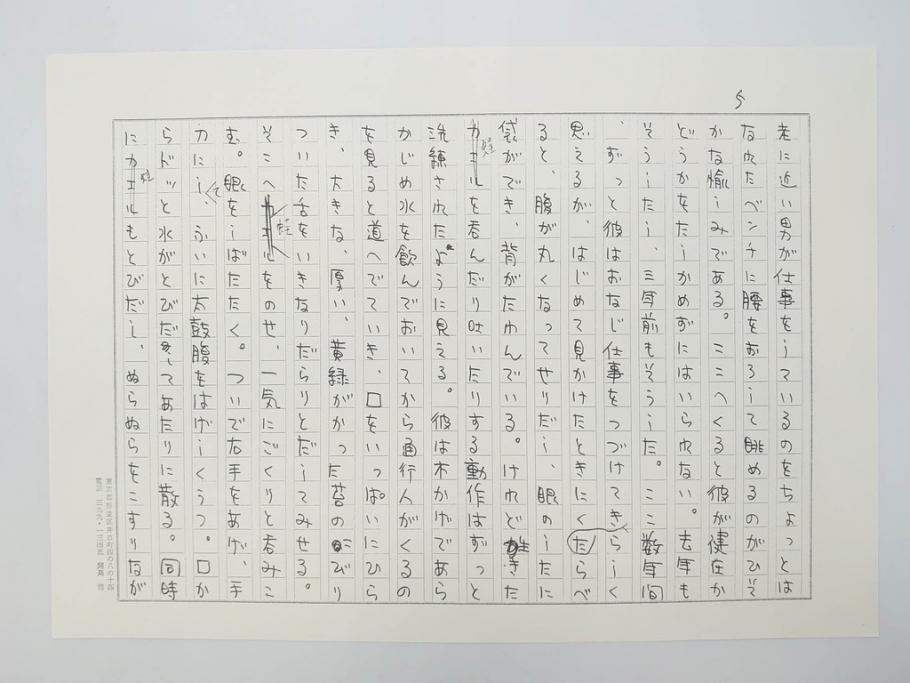 5
老に近い男が仕事をしているのをちょっとは
なれたベンチに腰をおろして眺めるのがひそ
かな愉しみである。ここへくると彼が健在か
どうかをたしかめずにはいられない。去年も
そうしたし、三年前もそうした。ここ数年間
、ずっと彼はおなじ仕事をつづけてきらしく
思えるが、はじめて見かけたときにくたらべ
ると、腹が丸くなってせりだし、眼のしたに
袋ができ、背がたわんでいる。けれど生きた
蛙を呑んだり吐いたりする動作はずっと
洗練されたように見える。彼は木かげであら
かじめ水を飲んでおいてから通行人がくるの
を見ると道へでていき、口をいっぱいにひら
き、大きな、厚い、黄緑がかった苔のびり
ついた舌をいきなりだらりとだしてみせる。
そこへ蛙をのせ、一気にごくりと呑みこ
む。眼をしばたたく。ついで右手をあげ、手
刀にして、ふいに太鼓腹をはげしくうつ。口か
らドッと水がとびだしてあたりに散る。同時
に蛙もとびだし、ぬらぬらをこすりなが
東京都杉並区井草町四の八の十四
電話 三九九・一三四五 開高 健